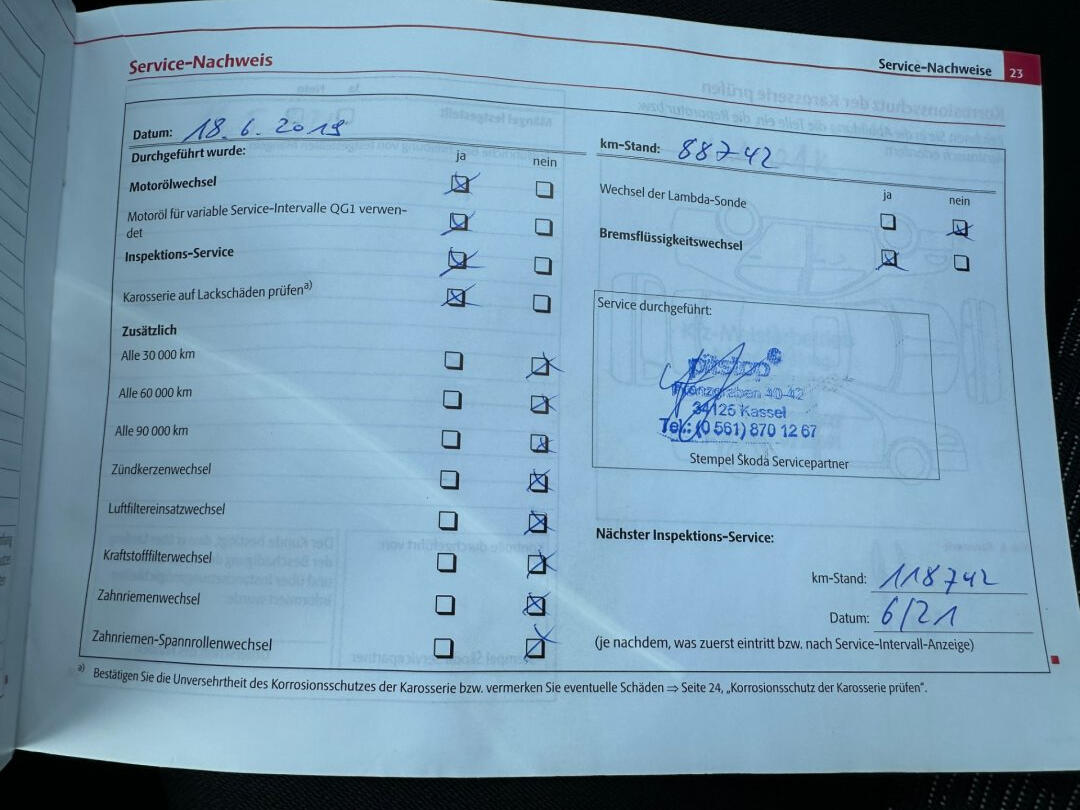 Service-Nachweise 23
Service-Nachweis
Datum: 18.6.2019
km-Stand: 88742
Durchgeführt wurde:
ja nein
Motorölwechsel
Motoröl für variable Service-Intervalle QG1 verwen-
det
Inspektions-Service
Karosserie auf Lackschäden prüfen a)
Zusätzlich
Alle 30 000 km
Alle 60 000 km
Alle 90 000 km
Zündkerzenwechsel
Luftfiltereinsatzwechsel
Kraftstofffilterwechsel
Zahnriemenwechsel
Zahnriemen-Spannrollenwechsel
ja nein
Wechsel der Lambda-Sonde
Bremsflüssigkeitswechsel
Service durchgeführt:
pitstop
40-42
34125 Kassel
Tel.: (0 561) 870 12 67
Stempel Škoda Servicepartner
Nächster Inspektions-Service:
km-Stand: 118742
Datum: 6/21
(je nachdem, was zuerst eintritt bzw. nach Service-Intervall-Anzeige)
a) Bestätigen Sie die Unversehrtheit des Korrosionsschutzes der Karosserie bzw. vermerken Sie eventuelle Schäden ⇒ Seite 24, „Korrosionsschutz der Karosserie prüfen“.